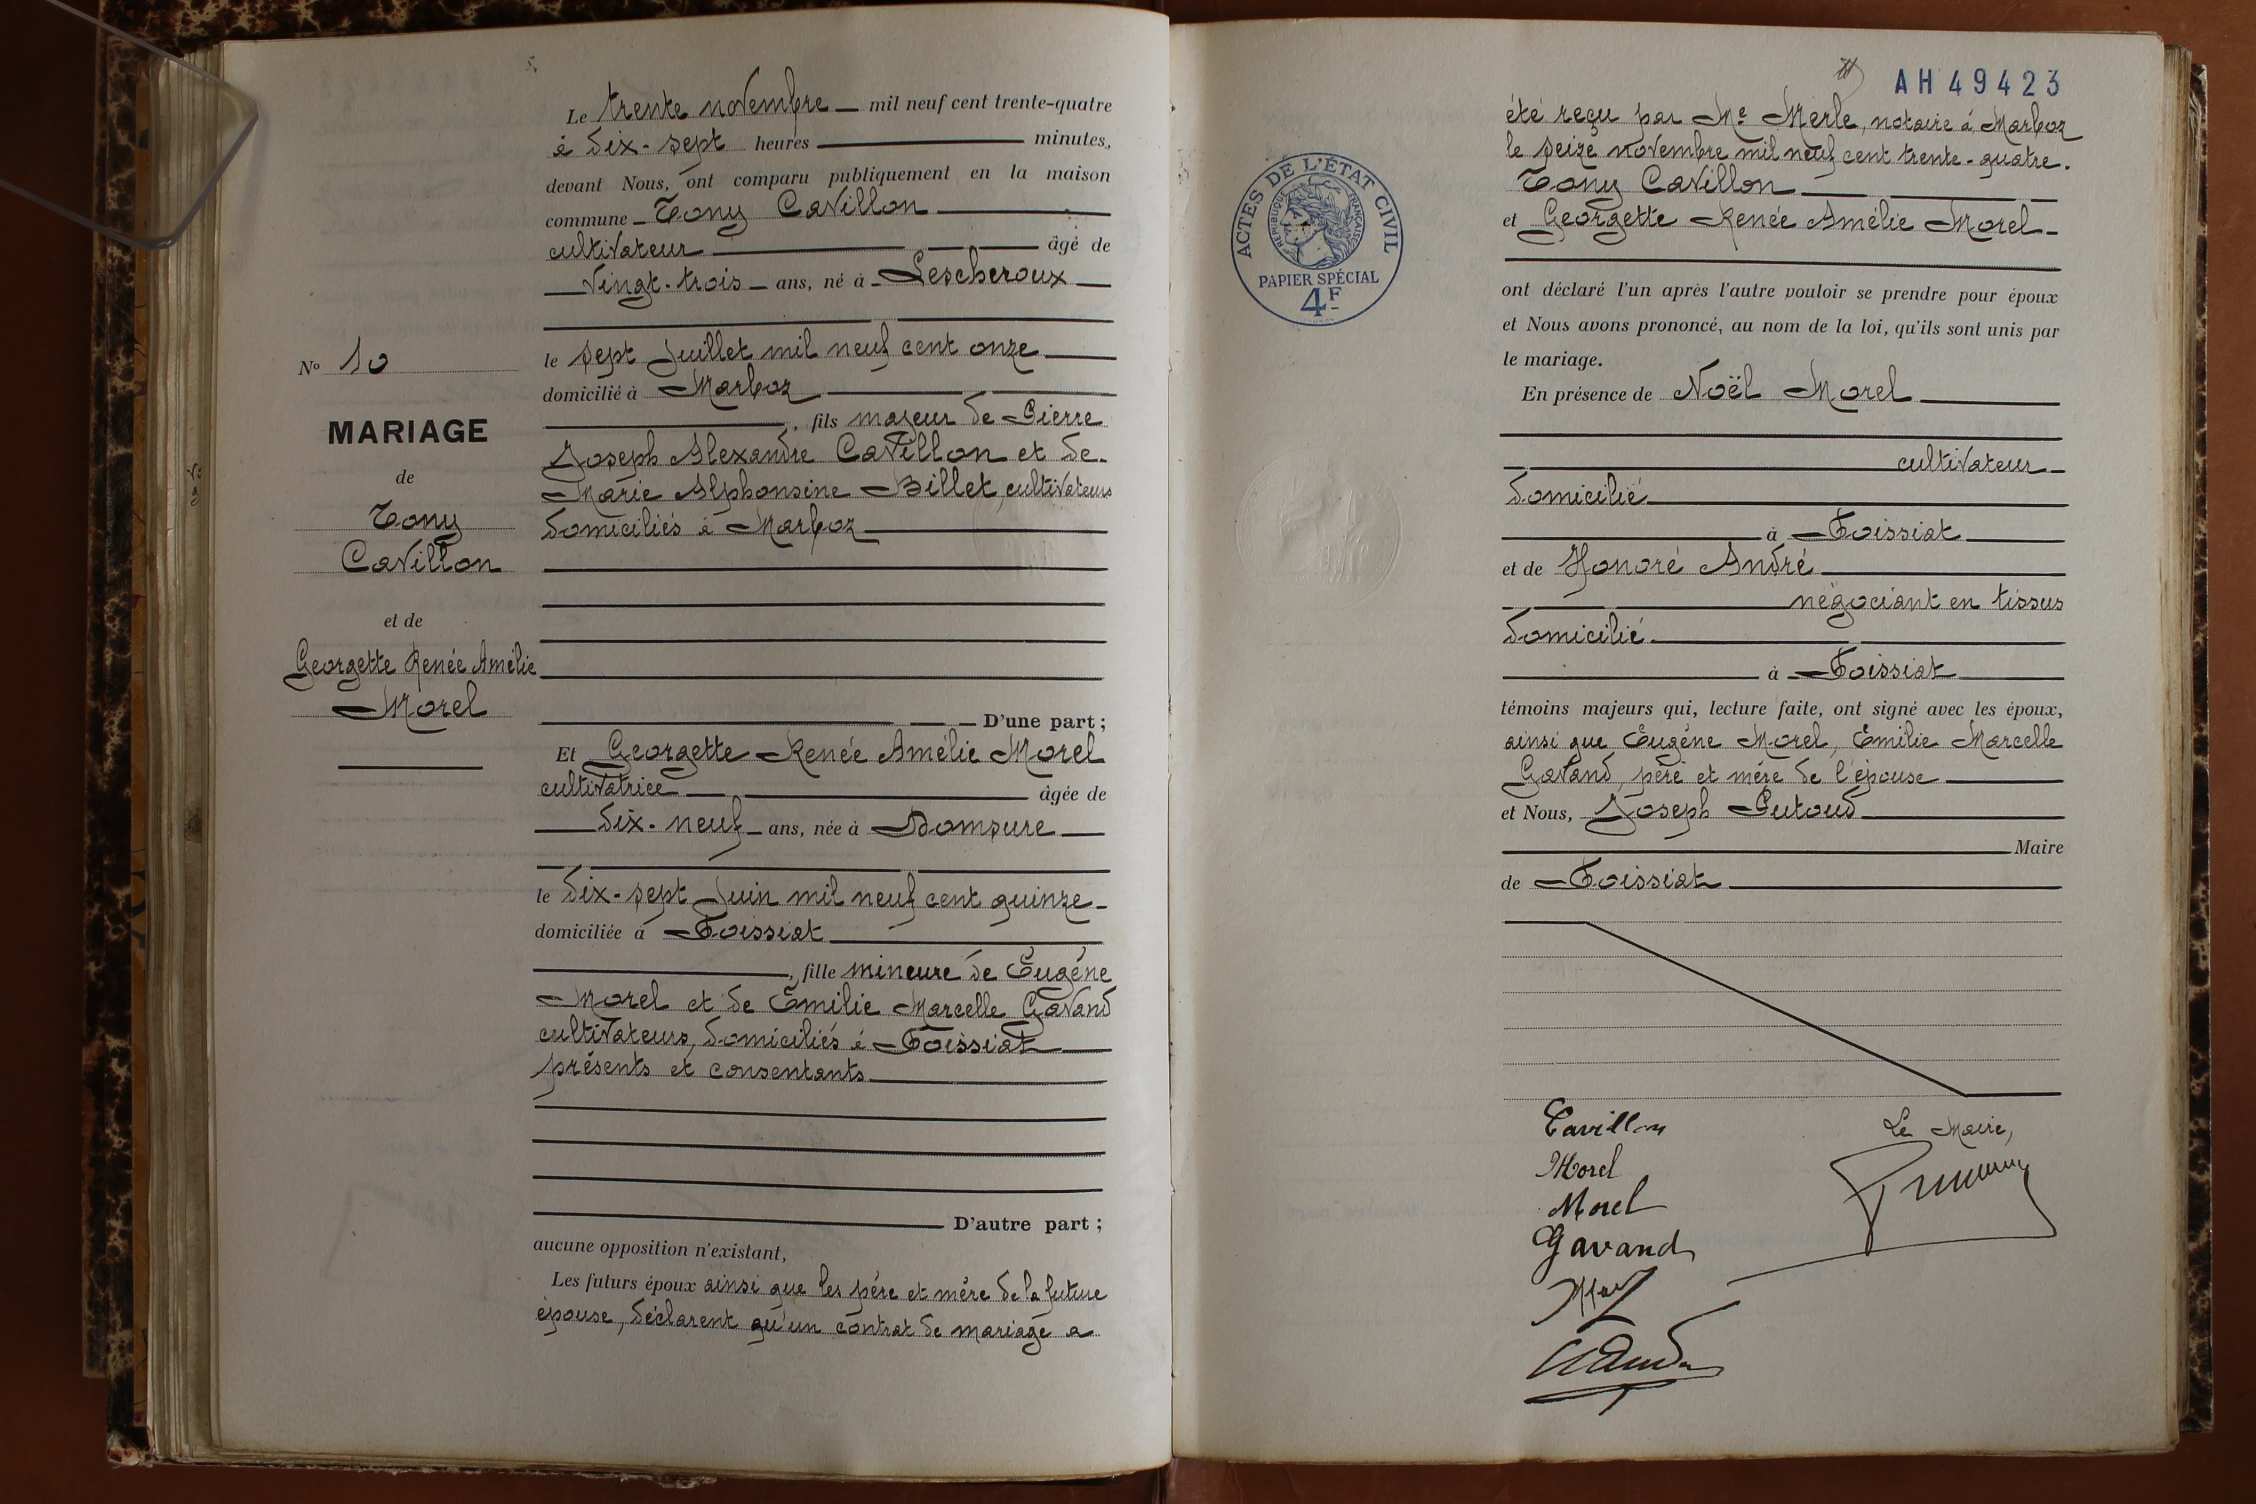 Le trente novembre mil neuf cent trente-quatre
à dix-sept heures minutes,
devant Nous, ont comparu publiquement en la maison
commune Tony Cavillon
cultivateur âgé de
vingt-trois ans, né à Lescheroux
le sept Juillet mil neuf cent onze
domicilié à Marboz
, fils majeur de Pierre
Joseph Alexandre Cavillon et de
Marie Alphonsine Billet, cultivateurs
domiciliés à Marboz
No 10
MARIAGE
de
Tony
Cavillon
et de
Georgette Renée Amélie
Morel
D'une part ;
Et Georgette Renée Amélie Morel
cultivatrice âgée de
dix-neuf ans, née à Domsure
le dix-sept Juin mil neuf cent quinze
domiciliée à Foissiat
, fille mineure de Eugène
Morel et de Emilie Marcelle Gavand
cultivateurs, domiciliés à Foissiat
présents et consentants
D'autre part ;
aucune opposition n'existant,
Les futurs époux ainsi que les père et mère de la future
épouse, déclarent qu'un contrat de mariage a
AH49423
été reçu par Me Merle, notaire à Marboz
le seize novembre mil neuf cent trente-quatre.
Tony Cavillon
et Georgette Renée Amélie Morel
ACTES DE L'ÉTAT CIVIL
RÉPUBLIQUE FRANÇAISE
PAPIER SPÉCIAL
4F
ont déclaré l'un après l'autre vouloir se prendre pour époux
et Nous avons prononcé, au nom de la loi, qu'ils sont unis par
le mariage.
En présence de Noël Morel
cultivateur
domicilié
à Foissiat
et de Honoré André
négociant en tissus
domicilié
à Foissiat
témoins majeurs qui, lecture faite, ont signé avec les époux,
ainsi que Eugène Morel, Emilie Marcelle
Gavand, père et mère de l'épouse
et Nous, Joseph Putoud
Maire
de Foissiat
Cavillon
Le Maire,
Morel
Morel
Gavand